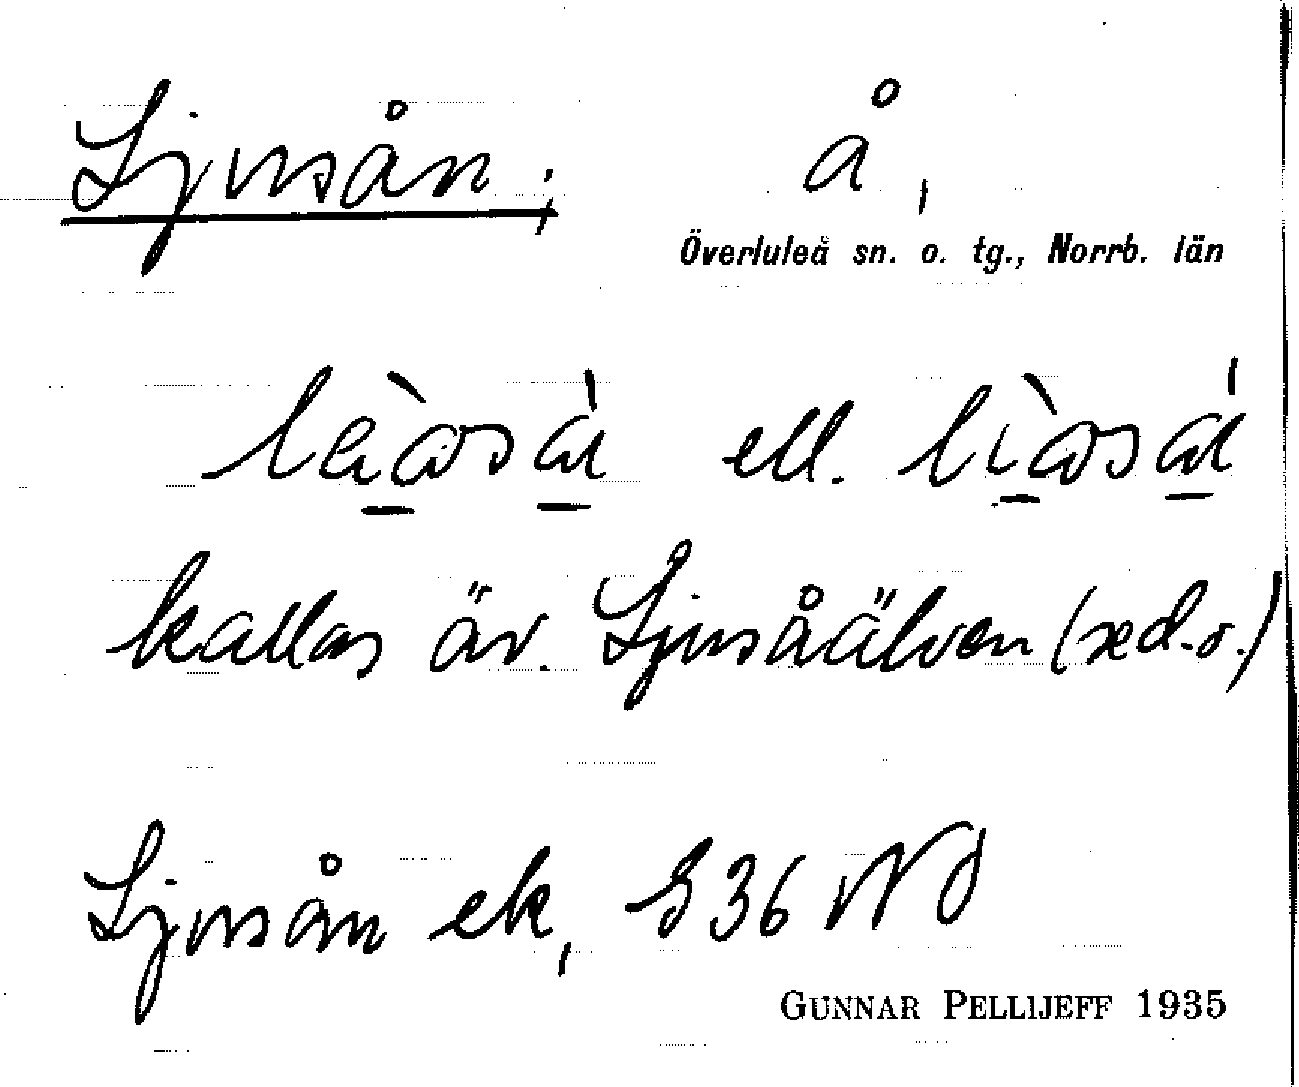 Ljusån; å,
Överluleå sn. o. tg., Norrb. län
ell.
kallas äv. Ljusåälven (sed.o.)
Ljusån ek, S 36 NO
GUNNAR PELLIJEFF 1935